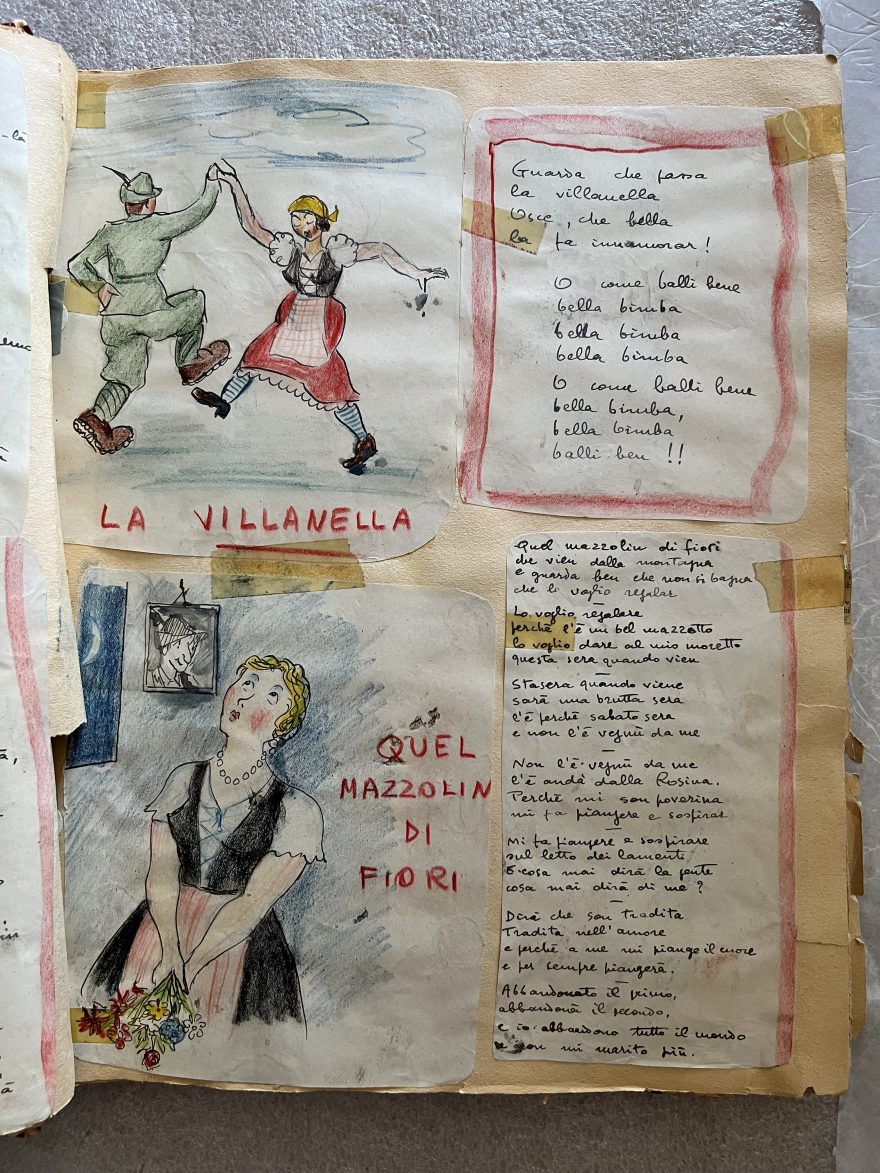 LA VILLANELLA
Guarda che passa
la villanella
Osce, che bella
la fa innamorar!
O come balli bene
bella bimba
bella bimba
bella bimba
O come balli bene
bella bimba,
bella bimba
balli ben !!
QUEL
MAZZOLIN
DI
FIORI
Quel mazzolin di fiori
che vien dalla montagna
e guarda ben che non si bagna
che lo voglio regalar
Lo voglio regalare
perchè l'è un bel mazzotto
lo voglio dare al mio moretto
questa sera quando vien
Stasera quando viene
sarà una brutta sera
l'è perchè sabato sera
e non l'è vegnù da me
Non l'è vegnù da me
l'è andà dalla Rosina.
Perchè mi son poverina
mi fa piangere e sospirar
Mi fa piangere e sospirare
sul letto dei lamenti
E cosa mai dirà la gente
cosa mai dirà di me ?
Dirà che son tradita
Tradita nell'amore
e perchè a me mi piange il cuore
e per sempre piangerà.
Abbandonato il primo,
abbandonà il secondo,
e io abbandono tutto il mondo
e non mi marito più.